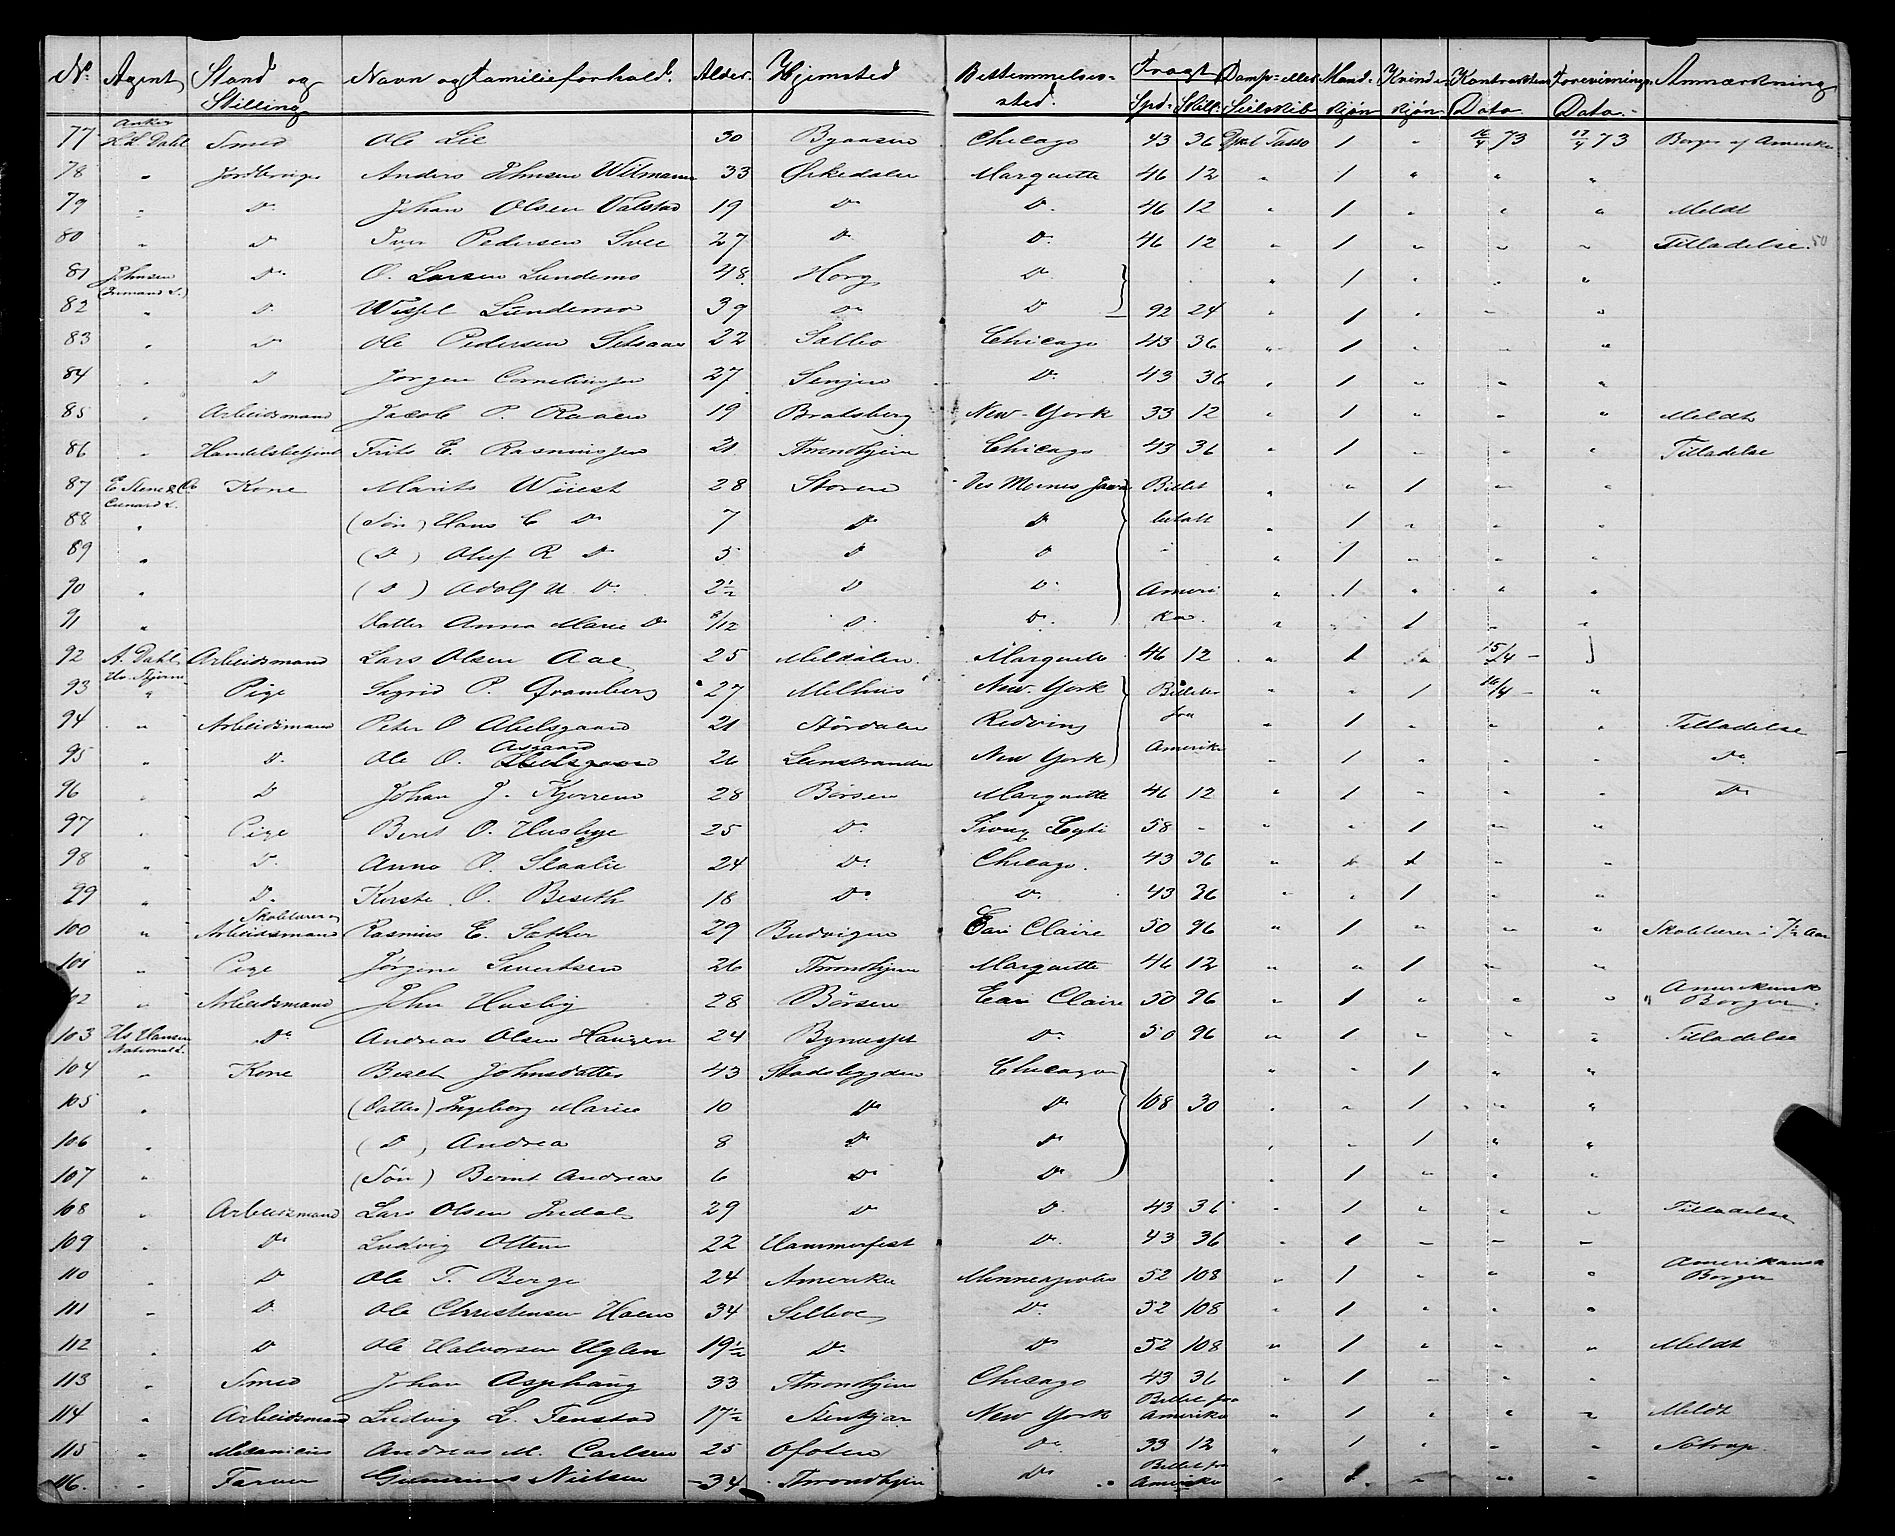 No. Agent Stand og Stilling Navn og Familieforhold. Alder. Hjemsted Bestemmelses-sted. Fragt Spd. Skill. Damp- eller Seilskib Mandkjøn Kvindekjøn Kontraktens Dato Forevisnings Dato. Anmærkning
77 Anker L. Dahl Smed Ole Lie 30 Bynæsen Chicago 43 36 Dpsk. Tasso 1 " 16/4 73 17/4 73 Borger af Amerika
78 " Anders Johnsen Wilmann 33 Ørkedalen Marquette 46 12 " 1 " " "
79 " Do Johan Olsen Valstad 19 Do Do 46 12 " 1 " " " Meldt
80 " Do Iver Pedersen Svee 27 Do Do 46 12 " 1 " " " Tilladelse. 50
81 Johnsen Do O. Larsen Lundemo 48 Horg Do " 1 " " "
82 " Do Lundemo 39 Do Do 92 24 " 1 " " "
83 " Do Ole Pedersen 22 Selbo Chicago 43 36 " 1 " " "
84 " Do Jørgen Corneliussen 27 Senjen Do 43 36 " 1 " " "
85 " Arbeidsmand Jacob P. Raaen 19 Bratsberg New-York 33 12 " 1 " " " Meldt
86 " Handelsbetjent Frits E. Rasmussen 21 Throndhjem Chicago 43 36 " 1 " " " Tilladelse
87 E. Stene & Co Cunard L. Kone Marith Wiiest 28 Støren Des Moines Billet " " 1 " "
88 " (Søn) Hans C Do 7 Do Do betalt " 1 " " "
89 " (Do) Oluf R Do 5 Do Do " 1 " " "
90 " (Do) Adolf U. Do 2½ Do Do Ameri " 1 " " "
91 " Datter Anna Marie Do 8/12 Do Do ka " " 1 " "
92 A. Dahl Arbeidsmand Lars Olsen Aae 25 Meldalen Marquette 46 12 " 1 " 15/4 - "
93 " Pige Sigrid P. Gramberg 27 Melhus New-York Billet " " 1 16/4 - "
94 " Arbeidsmand Peter O Abelsgaard 21 Størdalen Redwing fra " 1 " " " Tilladelse
95 " Do Ole O. Aasgaard 26 Leinstranden New York Amerika " 1 " " " Do
96 " Do Johan J. Kjørrem 28 Børsen Marquette 46 12 " 1 " " " Do
97 " Pige Beret O. Husbye 25 Do Sioux Cyti 58 - " " 1 " "
98 " Do Anna O. Slaalie 24 Do Chicago. 43 36 " 1 " "
99 " Do Kirste O. Beseth 18 Do Do 43 36 " " 1 " "
100 " Skolelærer og Arbeidsmand Rasmus E. Sæther 29 Budvigen Eau Claire 50 96 " 1 " " " Skolelærer i 7½ Aar
101 " Pige Jørgine Sivertsen 26 Throndhjem Marquette 46 12 " " 1 " "
102 " Arbeidsmand John Husby 28 Børsen Eau Claire 50 96 " 1 " " " Amerikansk Borger.
103 Hs Hansen National L. Do Andreas Olsen Haugen 24 Bynæsset Do 50 96 " 1 " " " Tilladelse
104 " Kone Johnsdatter 43 Stadsbygden Chicago " " 1 " "
105 " (Datter) Ingeborg Marie 10 Do Do 108 30 " " 1 " "
106 " (Do) Andrea 8 Do Do " " 1 " "
107 " (Søn) Bernt Andreas 6 Do Do " 1 " " "
108 " Arbeidsmand Lars Olsen Indal 29 Do Do 43 36 " 1 " " " Tilladelse
109 " Do Ludvig Ottem 22 Hammerfest Do 43 36 " 1 " " "
110 " Do Ole T. Berge 24 Amerika Minneapolis 52 108 " 1 " " " Amerikansk Borger
111 " Do Ole Christensen Hoem 34 Selboe Do 52 108 " 1 " " "
112 " Do Ole Halvorsen Uglen 19½ Do Do 52 108 " 1 " " " Meldt
113 " Smed Johan Asphaug 33 Throndhjem Chicago 43 36 " 1 " " "
114 " Arbeidsmand Ludvig L. Fenstad 17½ Stenkjær New York Billet fra Amerika " 1 " " " Meldt
115 " Mekanicus Andreas M. Carlsen 25 Ofoten Do 33 12 " 1 " " "
116. " Farver Nielsen 34 Throndhjem Do Billet fra Amerika " 1 " " "